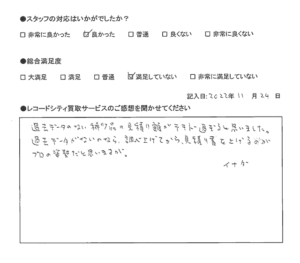 ●スタッフの対応はいかがでしたか？
□ 非常に良かった ☑ 良かった □ 普通 □ 良くない □ 非常に良くない
●総合満足度
□ 大満足 □ 満足 □ 普通 ☑ 満足していない □ 非常に満足していない
記入日:2022年 11月 24日
●レコードシティ買取サービスのご感想を聞かせてください
過去データのない 商品の見積り額がテキトー過ぎると思いました。
過去データがないのなら、調べ上げてから、見積り書を上げるのが
プロの姿勢だと思いますが。